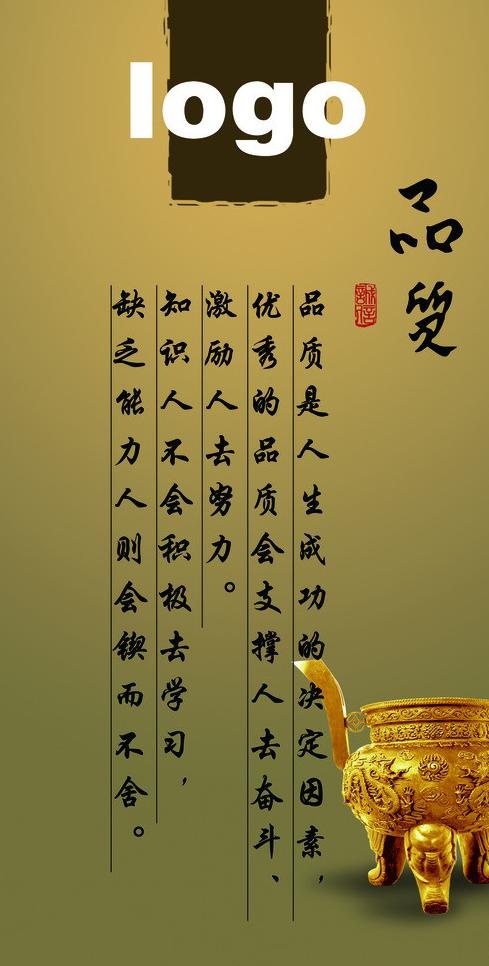 logo
品质
诚信
品质是人生成功的决定因素，
优秀的品质会支撑人去奋斗、
激励人去努力。
知识人不会积极去学习，
缺乏能力人则会锲而不舍。